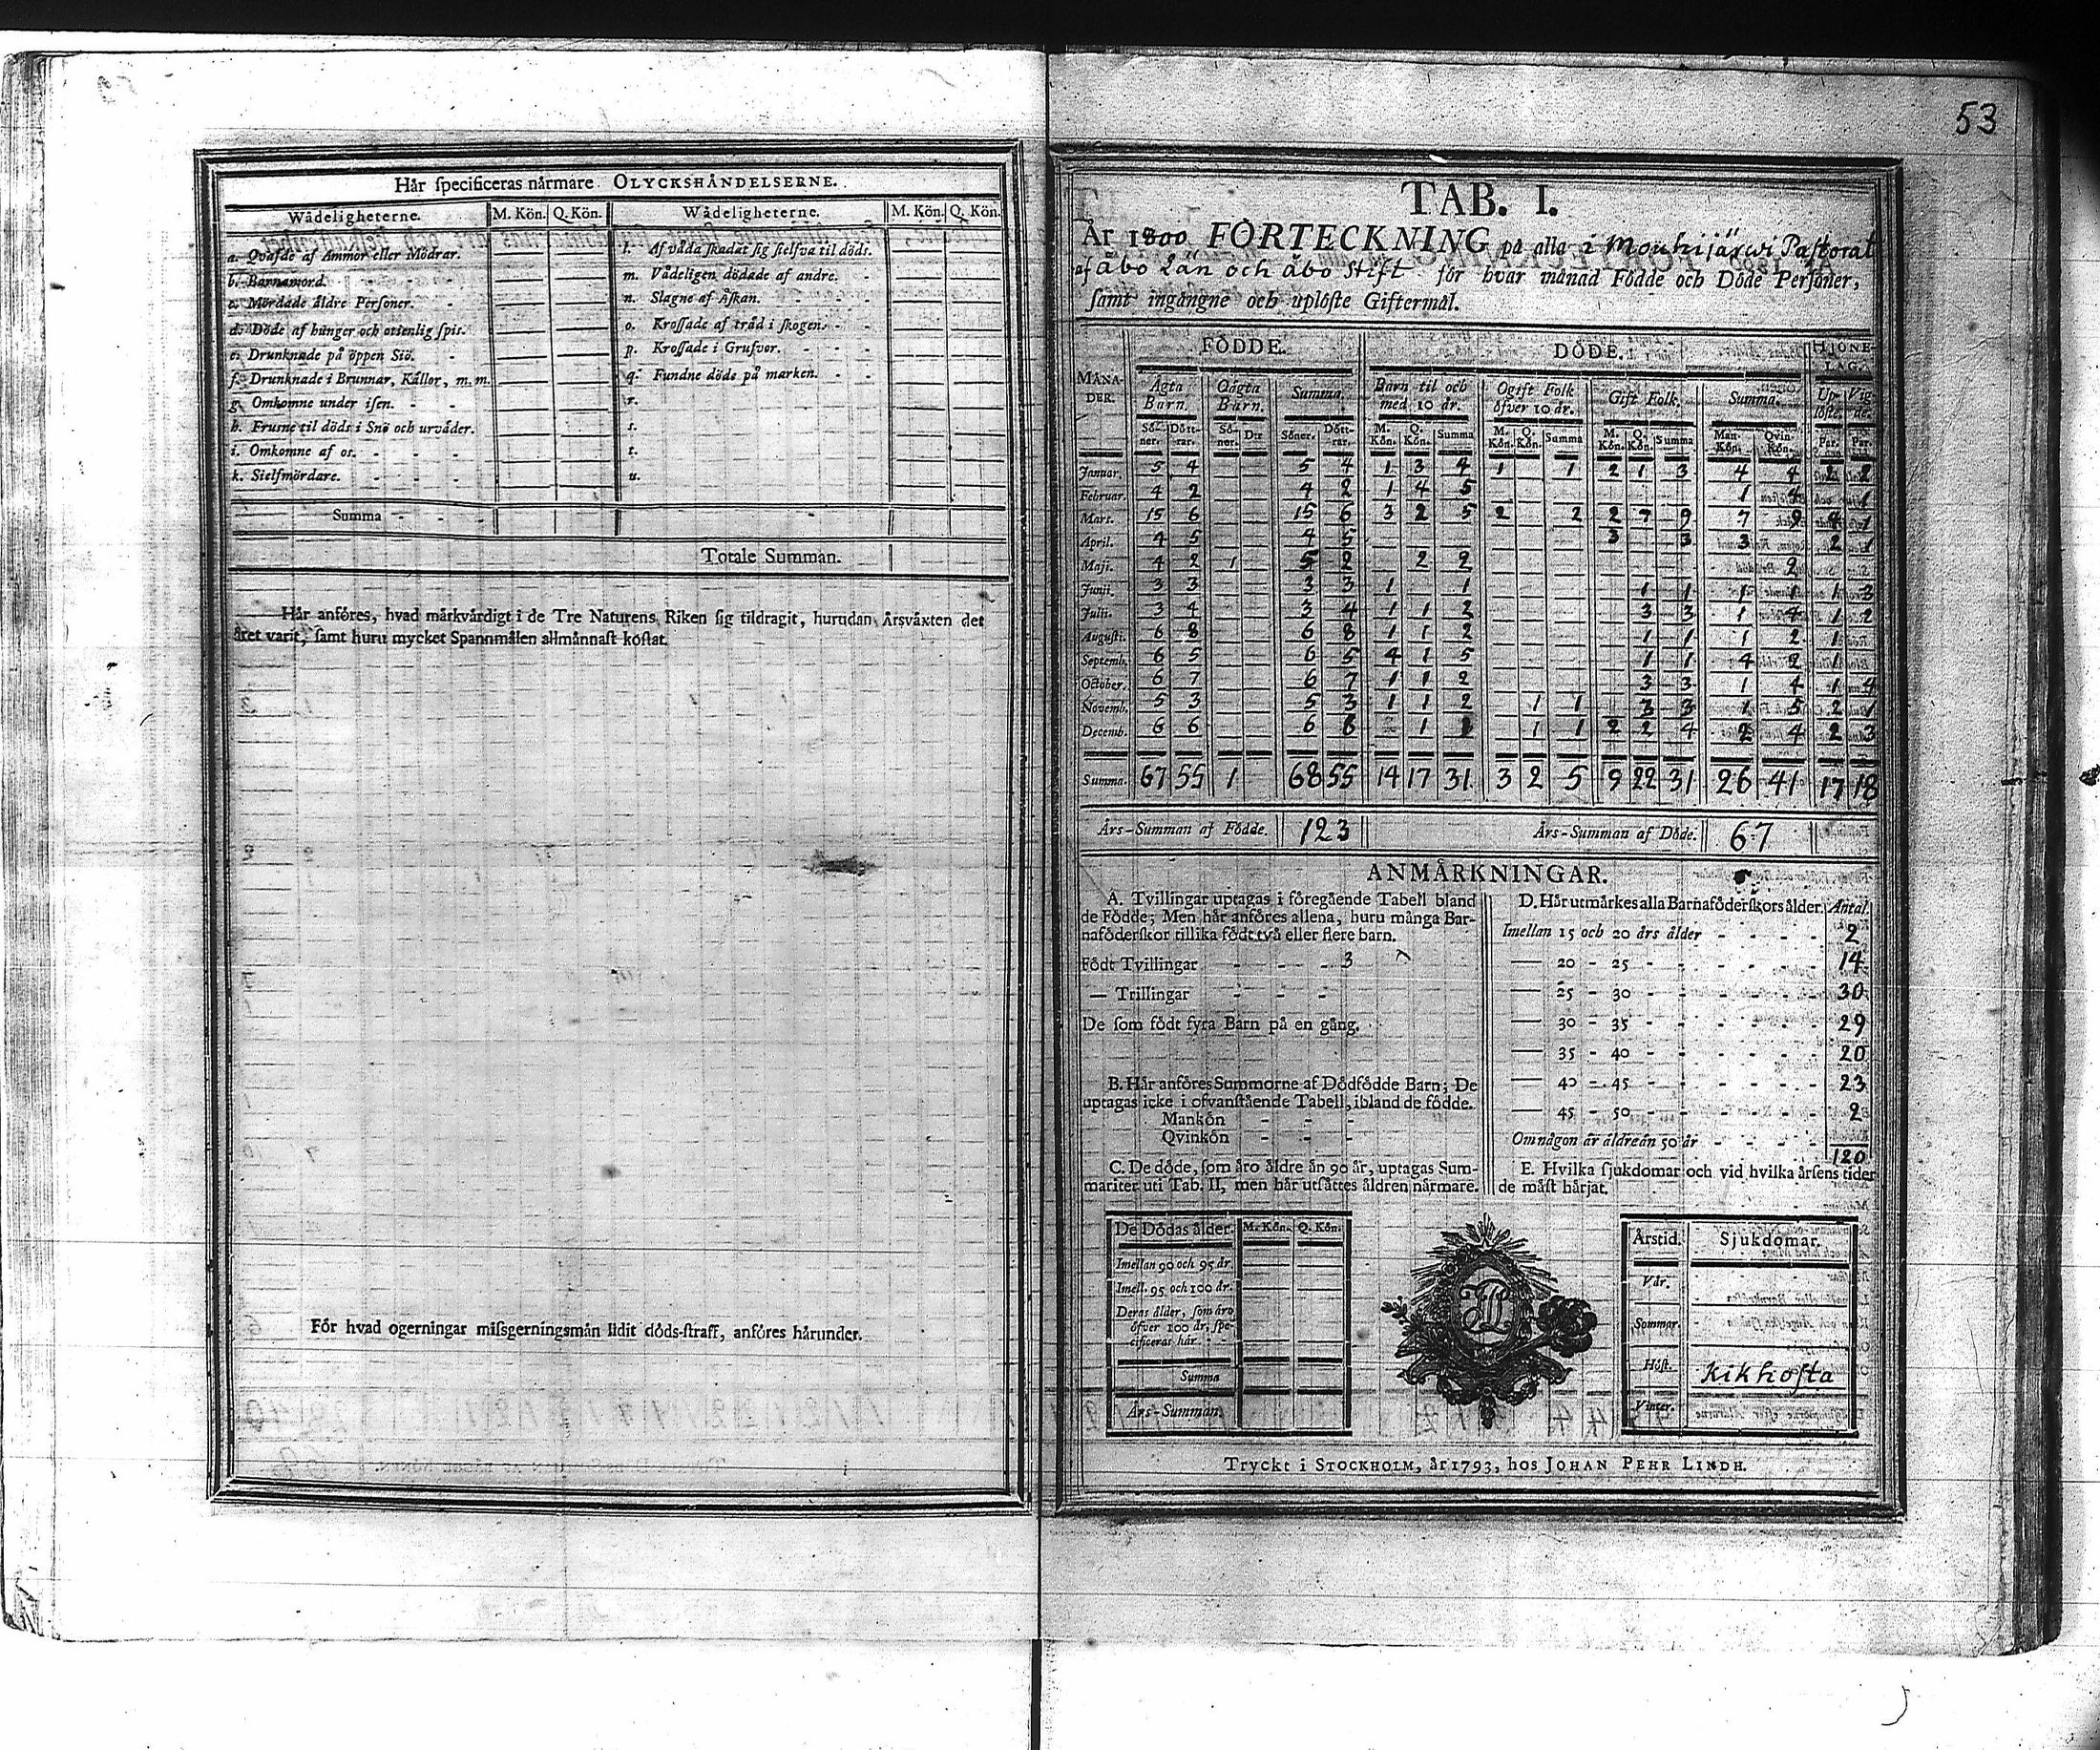 Hår ſpecificeras nårmare OLYCKSHÅNDELSERNE.
Wådeligheterne. M. Kön. Q. Kön. Wådeligheterne. M. Kön. Q. Kön.
a. Qvafde af Ammor eller Mödrar. l. Af våda ſkadat ſig ſielfva til döds.
b. Barnamord. m. Vådeligen dödade af andre.
c. Mördade äldre Perſoner. n. Slagne af Åſkan.
d. Döde af hunger och otienlig ſpis. o. Kroſſade af tråd i ſkogen.
e. Drunknade på öppen Siö. p. Kroſſade i Grufvor.
f. Drunknade i Brunnar, Kållor, m. m. q. Fundne döde på marken.
g. Omkomne under iſen. r.
h. Fruſne til döds i Snö och urväder. s.
i. Omkomne af os. t.
k. Sielfmördare. u.
Summa
Totale Summan.
Hår anföres, hvad mårkvårdigt i de Tre Naturens Riken ſig tildragit, hurudan Årsvåxten det
året varit, ſamt huru mycket Spannmålen allmånnaſt koſtat.
För hvad ogerningar miſsgerningsmån lidit döds-ſtraff, anföres hårunder.
53
TAB. I.
År 1800 FÖRTECKNING på alla i Mouhijärwi Paſtorat
af Åbo Län och Åbo Stift för hvar månad Födde och Döde Perſoner,
ſamt ingångne och uplöſte Giftermål.
FÖDDE. DÖDE. HJONE-LAG.
MÅNADER. Ägta Barn. Oägta Barn. Summa. Barn til och med 10 år. Ogift Folk öfver 10 år. Gift Folk. Summa. Uplöſte. Vigde.
Söner. Döttrar. Söner. Dtr Söner. Döttrar. M. Kön. Q. Kön. Summa M. Kön. Q. Kön. Summa M. Kön. Q. Kön. Summa Mankön. Qvinkön. Par. Par.
Januar. 5 4 5 4 1 3 4 1 1 2 1 3 4 4 2 2
Februar. 4 2 4 2 1 4 5 1 4 1
Mars. 15 6 15 6 3 2 5 2 2 2 7 9 7 9 4 1
April. 4 5 4 5 3 3 3 2 1
Maji. 4 2 1 5 2 2 2 2
Junii. 3 3 3 3 1 1 1 1 1 1 1 3
Julii. 3 4 3 4 1 1 2 3 3 1 4 1 2
Auguſti. 6 8 6 8 1 1 2 1 1 1 2 1
Septemb. 6 5 6 5 4 1 5 1 1 4 2 1
October. 6 7 6 7 1 1 2 3 3 1 4 1 4
Novemb. 5 3 5 3 1 1 2 1 1 3 3 1 5 2 1
Decemb. 6 6 6 6 1 1 1 1 2 2 4 2 4 2 3
Summa. 67 55 1 68 55 14 17 31 3 2 5 9 22 31 26 41 17 18
Års-Summan af Födde. 123 Års-Summan af Döde. 67
ANMÅRKNINGAR.
A. Tvillingar uptagas i föregående Tabell bland
de Födde; Men hår anföres allena, huru många Bar-
naföderſkor tillika födt två eller flere barn.
Födt Tvillingar 3
— Trillingar
De ſom födt fyra Barn på en gång.
B. Hår anföres Summorne af Dödfödde Barn; De
uptagas icke i ofvanſtående Tabell, ibland de födde.
Mankön
Qvinkön
C. De döde, ſom åro åldre ån 90 år, uptagas Sum-
mariter uti Tab. II, men hår utſåttes åldren nårmare.
D. Hår utmårkes alla Barnaföderſkors ålder. Antal.
Imellan 15 och 20 års ålder 2
— 20 - 25 14
— 25 - 30 30
— 30 - 35 29
— 35 - 40 20
— 40 - 45 23
— 45 - 50 2
Om någon år åldre ån 50 år
120
E. Hvilka ſjukdomar och vid hvilka årſens tider
de måſt hårjat.
De Dödas ålder. M. Kön. Q. Kön.
Imellan 90 och 95 år.
Imell. 95 och 100 år.
Deras ålder, ſom åro
öfver 100 år, ſpe-
cificeras hår.
Summa
Års-Summan.
Årstid. Sjukdomar.
Vår.
Sommar.
Höſt. Kikhoſta
Vinter.
Tryckt i STOCKHOLM, år 1793, hos JOHAN PEHR LINDH.